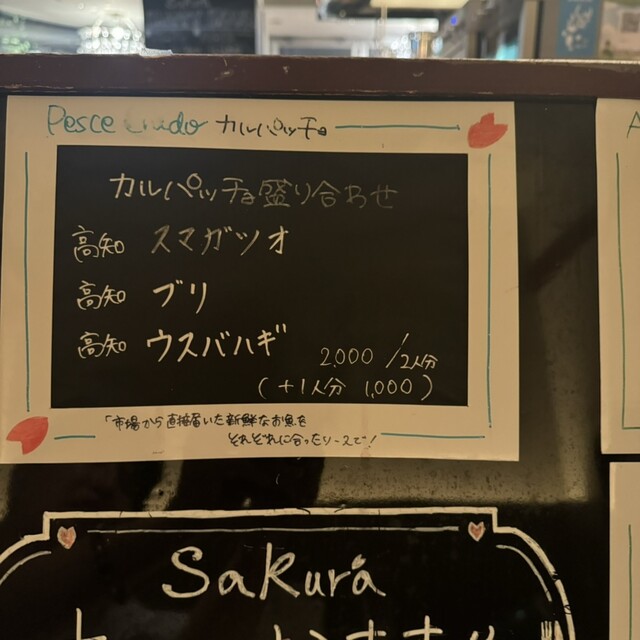 Pesce Crudo カルパッチョ
カルパッチョ盛り合わせ
高知 スマガツオ
高知 ブリ
高知 ウスバハギ
2,000 /2人分
(+1人分 1,000)
「市場から直接届いた新鮮なお魚を
それぞれに合ったソースで!
Sakura